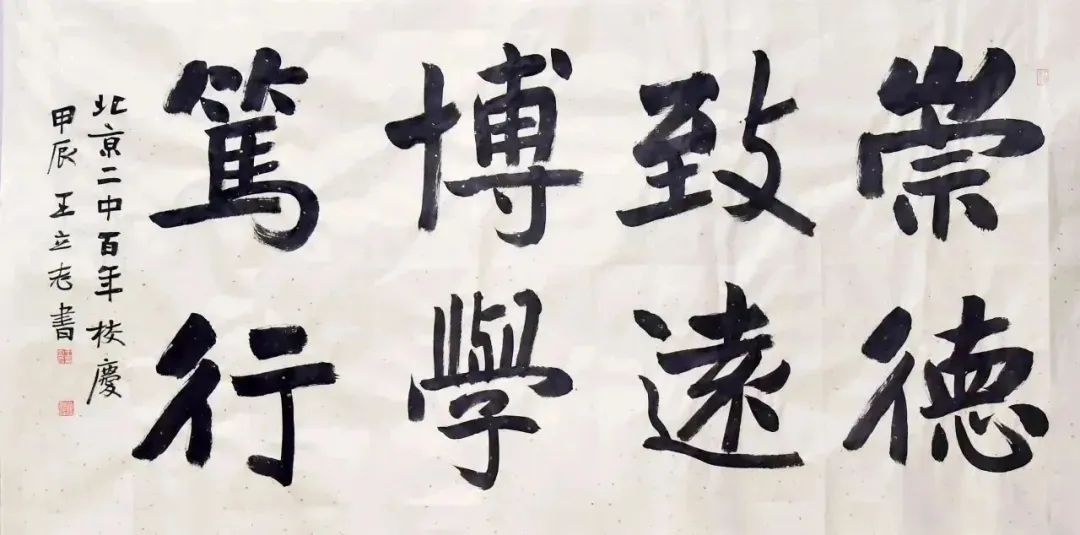 崇德
致遠
博學
篤行
北京二中百年校慶
甲辰 王立志書